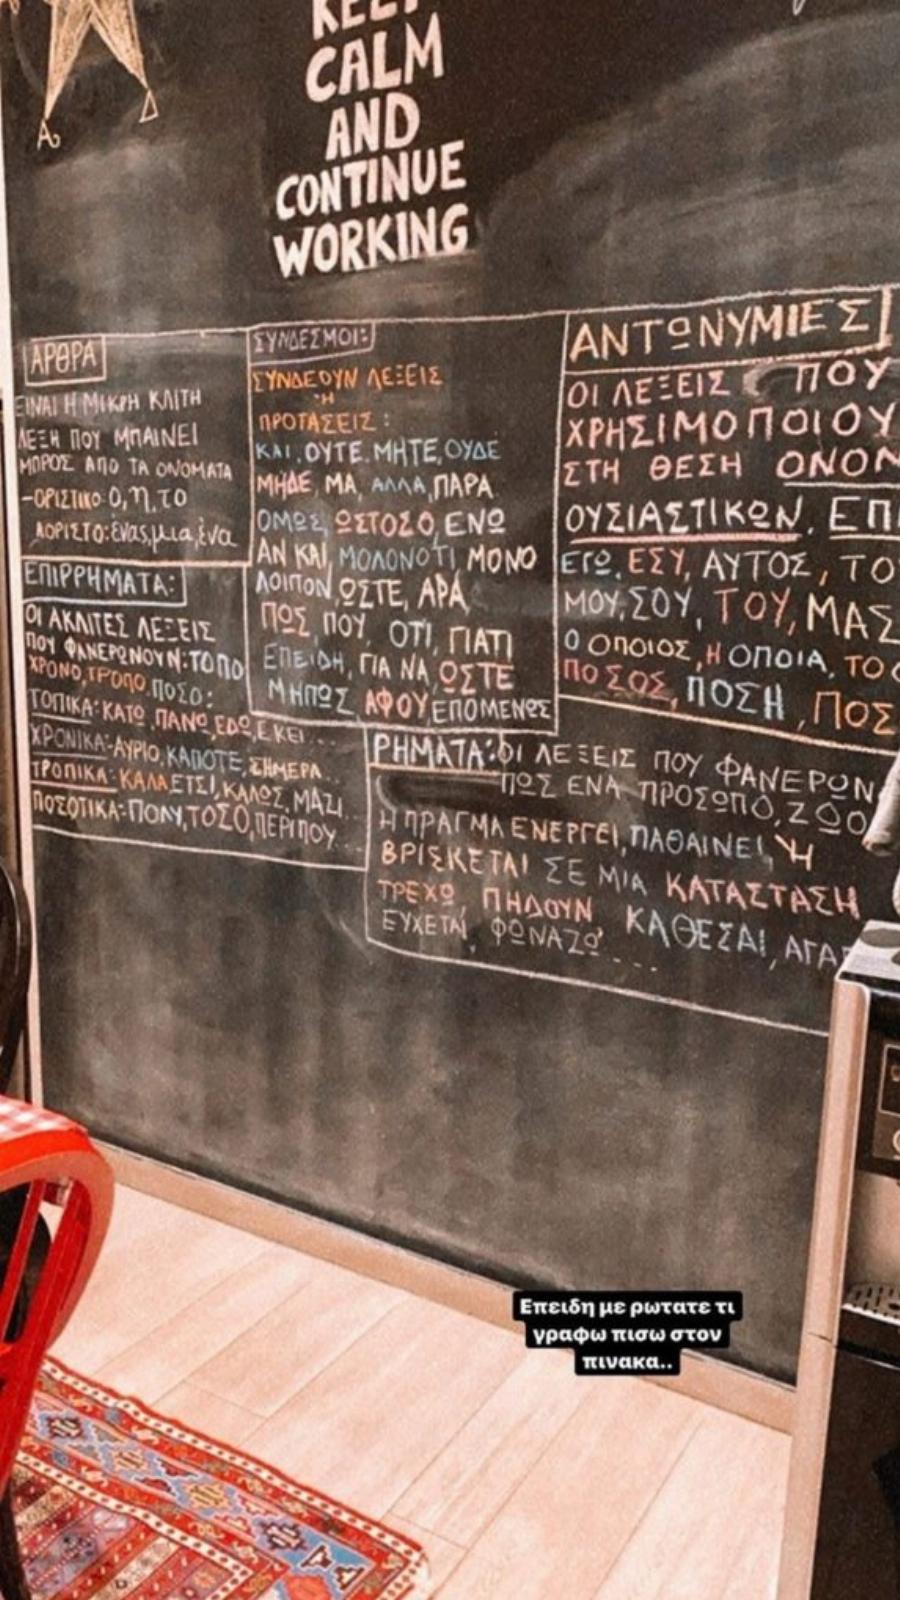 KEEP
CALM
AND
CONTINUE
WORKING
ΑΡΘΡΑ
ΕΙΝΑΙ Η ΜΙΚΡΗ ΚΛΙΤΗ
ΛΕΞΗ ΠΟΥ ΜΠΑΙΝΕΙ
ΜΠΡΟΣ ΑΠΟ ΤΑ ΟΝΟΜΑΤΑ
-ΟΡΙΣΤΙΚΟ: Ο, η, το
ΑΟΡΙΣΤΟ: ένας, μια, ένα
ΕΠΙΡΡΗΜΑΤΑ:
ΟΙ ΑΚΛΙΤΕΣ ΛΕΞΕΙΣ
ΠΟΥ ΦΑΝΕΡΩΝΟΥΝ: ΤΟΠΟ
ΧΡΟΝΟ, ΤΡΟΠΟ, ΠΟΣΟ:
ΤΟΠΙΚΑ: ΚΑΤΩ, ΠΑΝΩ, ΕΔΩ, ΕΚΕΙ...
ΧΡΟΝΙΚΑ: ΑΥΡΙΟ, ΚΑΠΟΤΕ, ΣΗΜΕΡΑ..
ΤΡΟΠΙΚΑ: ΚΑΛΑ ΕΤΣΙ, ΚΑΛΩΣ, ΜΑΖΙ..
ΠΟΣΟΤΙΚΑ: ΠΟΛΥ, ΤΟΣΟ, ΠΕΡΙΠΟΥ...
ΣΥΝΔΕΣΜΟΙ:
ΣΥΝΔΕΟΥΝ ΛΕΞΕΙΣ
Ή
ΠΡΟΤΑΣΕΙΣ:
ΚΑΙ, ΟΥΤΕ, ΜΗΤΕ, ΟΥΔΕ
ΜΗΔΕ, ΜΑ, ΑΛΛΑ, ΠΑΡΑ
ΟΜΩΣ, ΩΣΤΟΣΟ, ΕΝΩ
ΑΝ ΚΑΙ, ΜΟΛΟΝΟΤΙ, ΜΟΝΟ
ΛΟΙΠΟΝ, ΩΣΤΕ, ΑΡΑ
ΠΩΣ, ΠΟΥ, ΟΤΙ, ΓΙΑΤΙ
ΕΠΕΙΔΗ, ΓΙΑ ΝΑ, ΩΣΤΕ
ΜΗΠΩΣ ΑΦΟΥ, ΕΠΟΜΕΝΩΣ
ΑΝΤΩΝΥΜΙΕΣ
ΟΙ ΛΕΞΕΙΣ ΠΟΥ
ΧΡΗΣΙΜΟΠΟΙΟΥ
ΣΤΗ ΘΕΣΗ ΟΝΟΜ
ΟΥΣΙΑΣΤΙΚΩΝ, ΕΠΙ
ΕΓΩ, ΕΣΥ, ΑΥΤΟΣ, ΤΟ
ΜΟΥ, ΣΟΥ, ΤΟΥ, ΜΑΣ
Ο ΟΠΟΙΟΣ, Η ΟΠΟΙΑ, ΤΟ Ο
ΠΟΣΟΣ, ΠΟΣΗ, ΠΟΣ
ΡΗΜΑΤΑ: ΟΙ ΛΕΞΕΙΣ ΠΟΥ ΦΑΝΕΡΩΝ
ΠΩΣ ΕΝΑ ΠΡΟΣΩΠΟ, ΖΩΟ
Η ΠΡΑΓΜΑ ΕΝΕΡΓΕΙ, ΠΑΘΑΙΝΕΙ, Ή
ΒΡΙΣΚΕΤΑΙ ΣΕ ΜΙΑ ΚΑΤΑΣΤΑΣΗ
ΤΡΕΧΩ, ΠΗΔΟΥΝ ΚΑΘΕΣΑΙ, ΑΓΑΠ
ΕΥΧΕΤΑΙ, ΦΩΝΑΖΩ....
Επειδη με ρωτατε τι
γραφω πισω στον
πινακα..